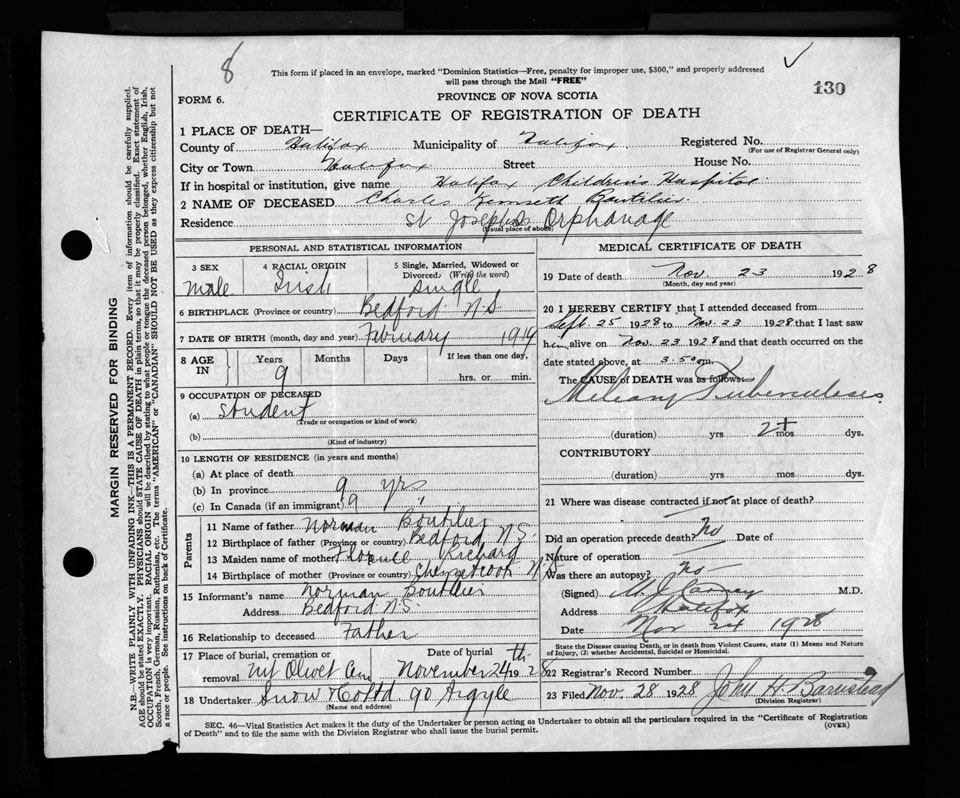 8
This form if placed in an envelope, marked "Dominion Statistics—Free, penalty for improper use, $300," and properly addressed
will pass through the Mail "FREE"
130
FORM 6.
PROVINCE OF NOVA SCOTIA
CERTIFICATE OF REGISTRATION OF DEATH
1 PLACE OF DEATH—
County of Halifax Municipality of Halifax Registered No.
(For use of Registrar General only)
City or Town Halifax Street House No.
If in hospital or institution, give name Halifax Children's Hospital
2 NAME OF DECEASED Charles Kenneth Boutilier
Residence St Joseph's Orphanage
(Usual place of abode)
PERSONAL AND STATISTICAL INFORMATION
3 SEX 4 RACIAL ORIGIN 5 Single, Married, Widowed or
Divorced. (Write the word)
Male Irish Single
6 BIRTHPLACE (Province or country) Bedford N.S
7 DATE OF BIRTH (month, day and year) February 1919
8 AGE IN Years Months Days If less than one day,
9 hrs. or min.
9 OCCUPATION OF DECEASED
(a) Student
(Trade or occupation or kind of work)
(b)
(Kind of industry)
10 LENGTH OF RESIDENCE (in years and months)
(a) At place of death
(b) In province 9 yrs
(c) In Canada (if an immigrant) 9 "
Parents
11 Name of father Norman Boutilier
12 Birthplace of father (Province or country) Bedford N.S.
13 Maiden name of mother Richard
14 Birthplace of mother (Province or country) Chezzetcook N.S
15 Informant's name Norman Boutilier
Address Bedford N.S.
16 Relationship to deceased Father
17 Place of burial, cremation or Date of burial
removal Mt Olivet Cem November 24th 1928
18 Undertaker Snow & Co Ltd 90 Argyle
(Name and address)
MEDICAL CERTIFICATE OF DEATH
19 Date of death Nov. 23 1928
(Month, day and year)
20 I HEREBY CERTIFY that I attended deceased from
Sept. 25 1928 to Nov. 23 1928 that I last saw
him alive on Nov. 23 1928 and that death occurred on the
date stated above, at 3.50 m.
The CAUSE of DEATH was as follows:
Miliary Tuberculosis
(duration) yrs 2+ mos dys.
CONTRIBUTORY
(duration) yrs. mos. dys.
21 Where was disease contracted if not at place of death?
Did an operation precede death? No Date of
Nature of operation
Was there an autopsy? No
(Signed) M.D.
Address Halifax
Date Nov 24 1928
State the Disease causing Death, or in death from Violent Causes, state (1) Means and Nature
of Injury, (2) whether Accidental, Suicidal or Homicidal.
22 Registrar's Record Number
23 Filed Nov. 28 1928 John H Barnstead
(Division Registrar)
SEC. 46—Vital Statistics Act makes it the duty of the Undertaker or person acting as Undertaker to obtain all the particulars required in the "Certificate of Registration
of Death" and to file the same with the Division Registrar who shall issue the burial permit.
(OVER)
MARGIN RESERVED FOR BINDING
N.B.—WRITE PLAINLY WITH UNFADING INK—THIS IS A PERMANENT RECORD. Every item of information should be carefully supplied.
AGE should be stated EXACTLY. PHYSICIANS should STATE CAUSE OF DEATH in plain terms, so that it may be properly classified. Exact statement of
OCCUPATION is very important. RACIAL ORIGIN will be described by stating to what people or tongue the deceased person belonged, whether English, Irish,
Scotch, French, German, Russian, Ruthenian, etc. The terms "AMERICAN" or "CANADIAN" SHOULD NOT BE USED as they express citizenship but not
a race or people. See instructions on back of Certificate.